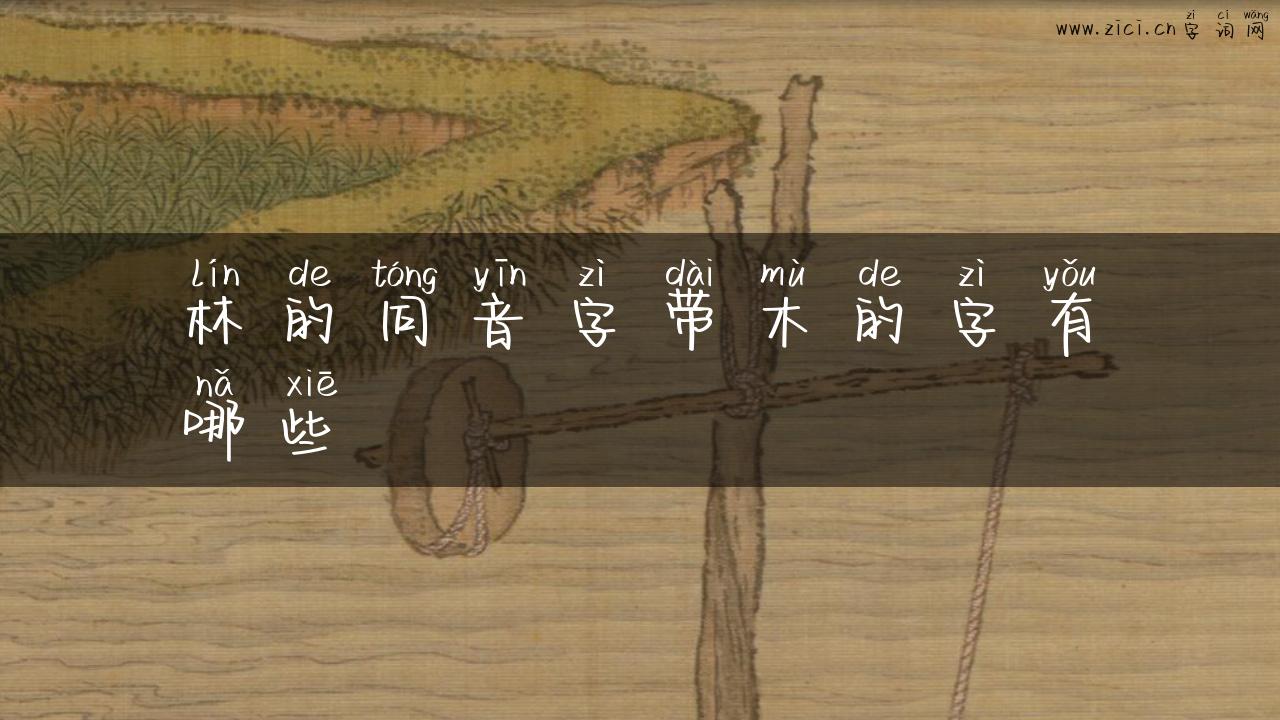 zì cí wǎng
www.zici.cn 字词网
lín de tóng yīn zì dài mù de zì yǒu
林的同音字带木的字有
nǎ xiē
哪些